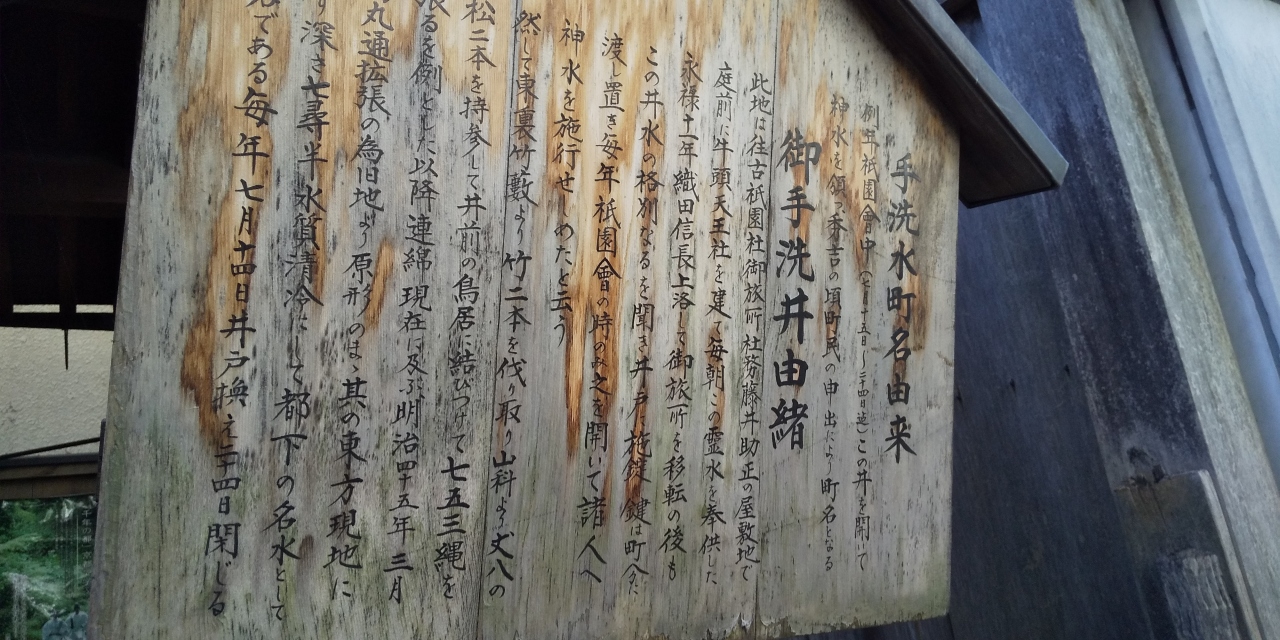 手洗水町名由来
例年祇園會中(七月十五日〜二十四日迄)この井を開いて
神水を領つ 秀吉の頃町民の申出により町名となる
御手洗井由緒
此地は往古祇園社御旅所社務藤井助正の屋敷地で
庭前に牛頭天王社を建て毎朝この霊水を奉供した
永禄十一年織田信長上洛して御旅所を移転の後も
この井水の格別なるを聞き井戸に施錠 鍵は町会に
渡し置き毎年祇園會の時のみ之を開いて諸人へ
神水を施行せしめたと云う
然して東裏竹藪より竹二本を伐り取り山科より丈八の
松二本を持参して井前の鳥居に結びつけて七五三縄を
張るを例とした以降連綿現在に及ぶ明治四十五年三月
丸通拡張の為旧地より原形のまゝ其の東方現地に
り深さ七尋半水質清冷にして都下の名水として
である毎年七月十四日井戸換え二十四日閉じる